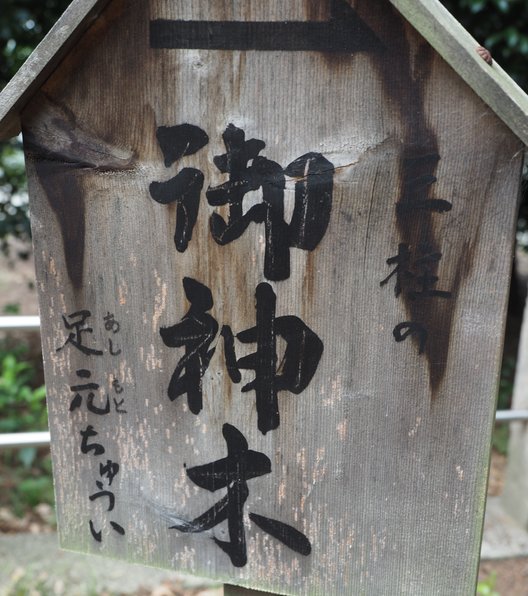 三柱の
御神木
あしもと
足元ちゅうい